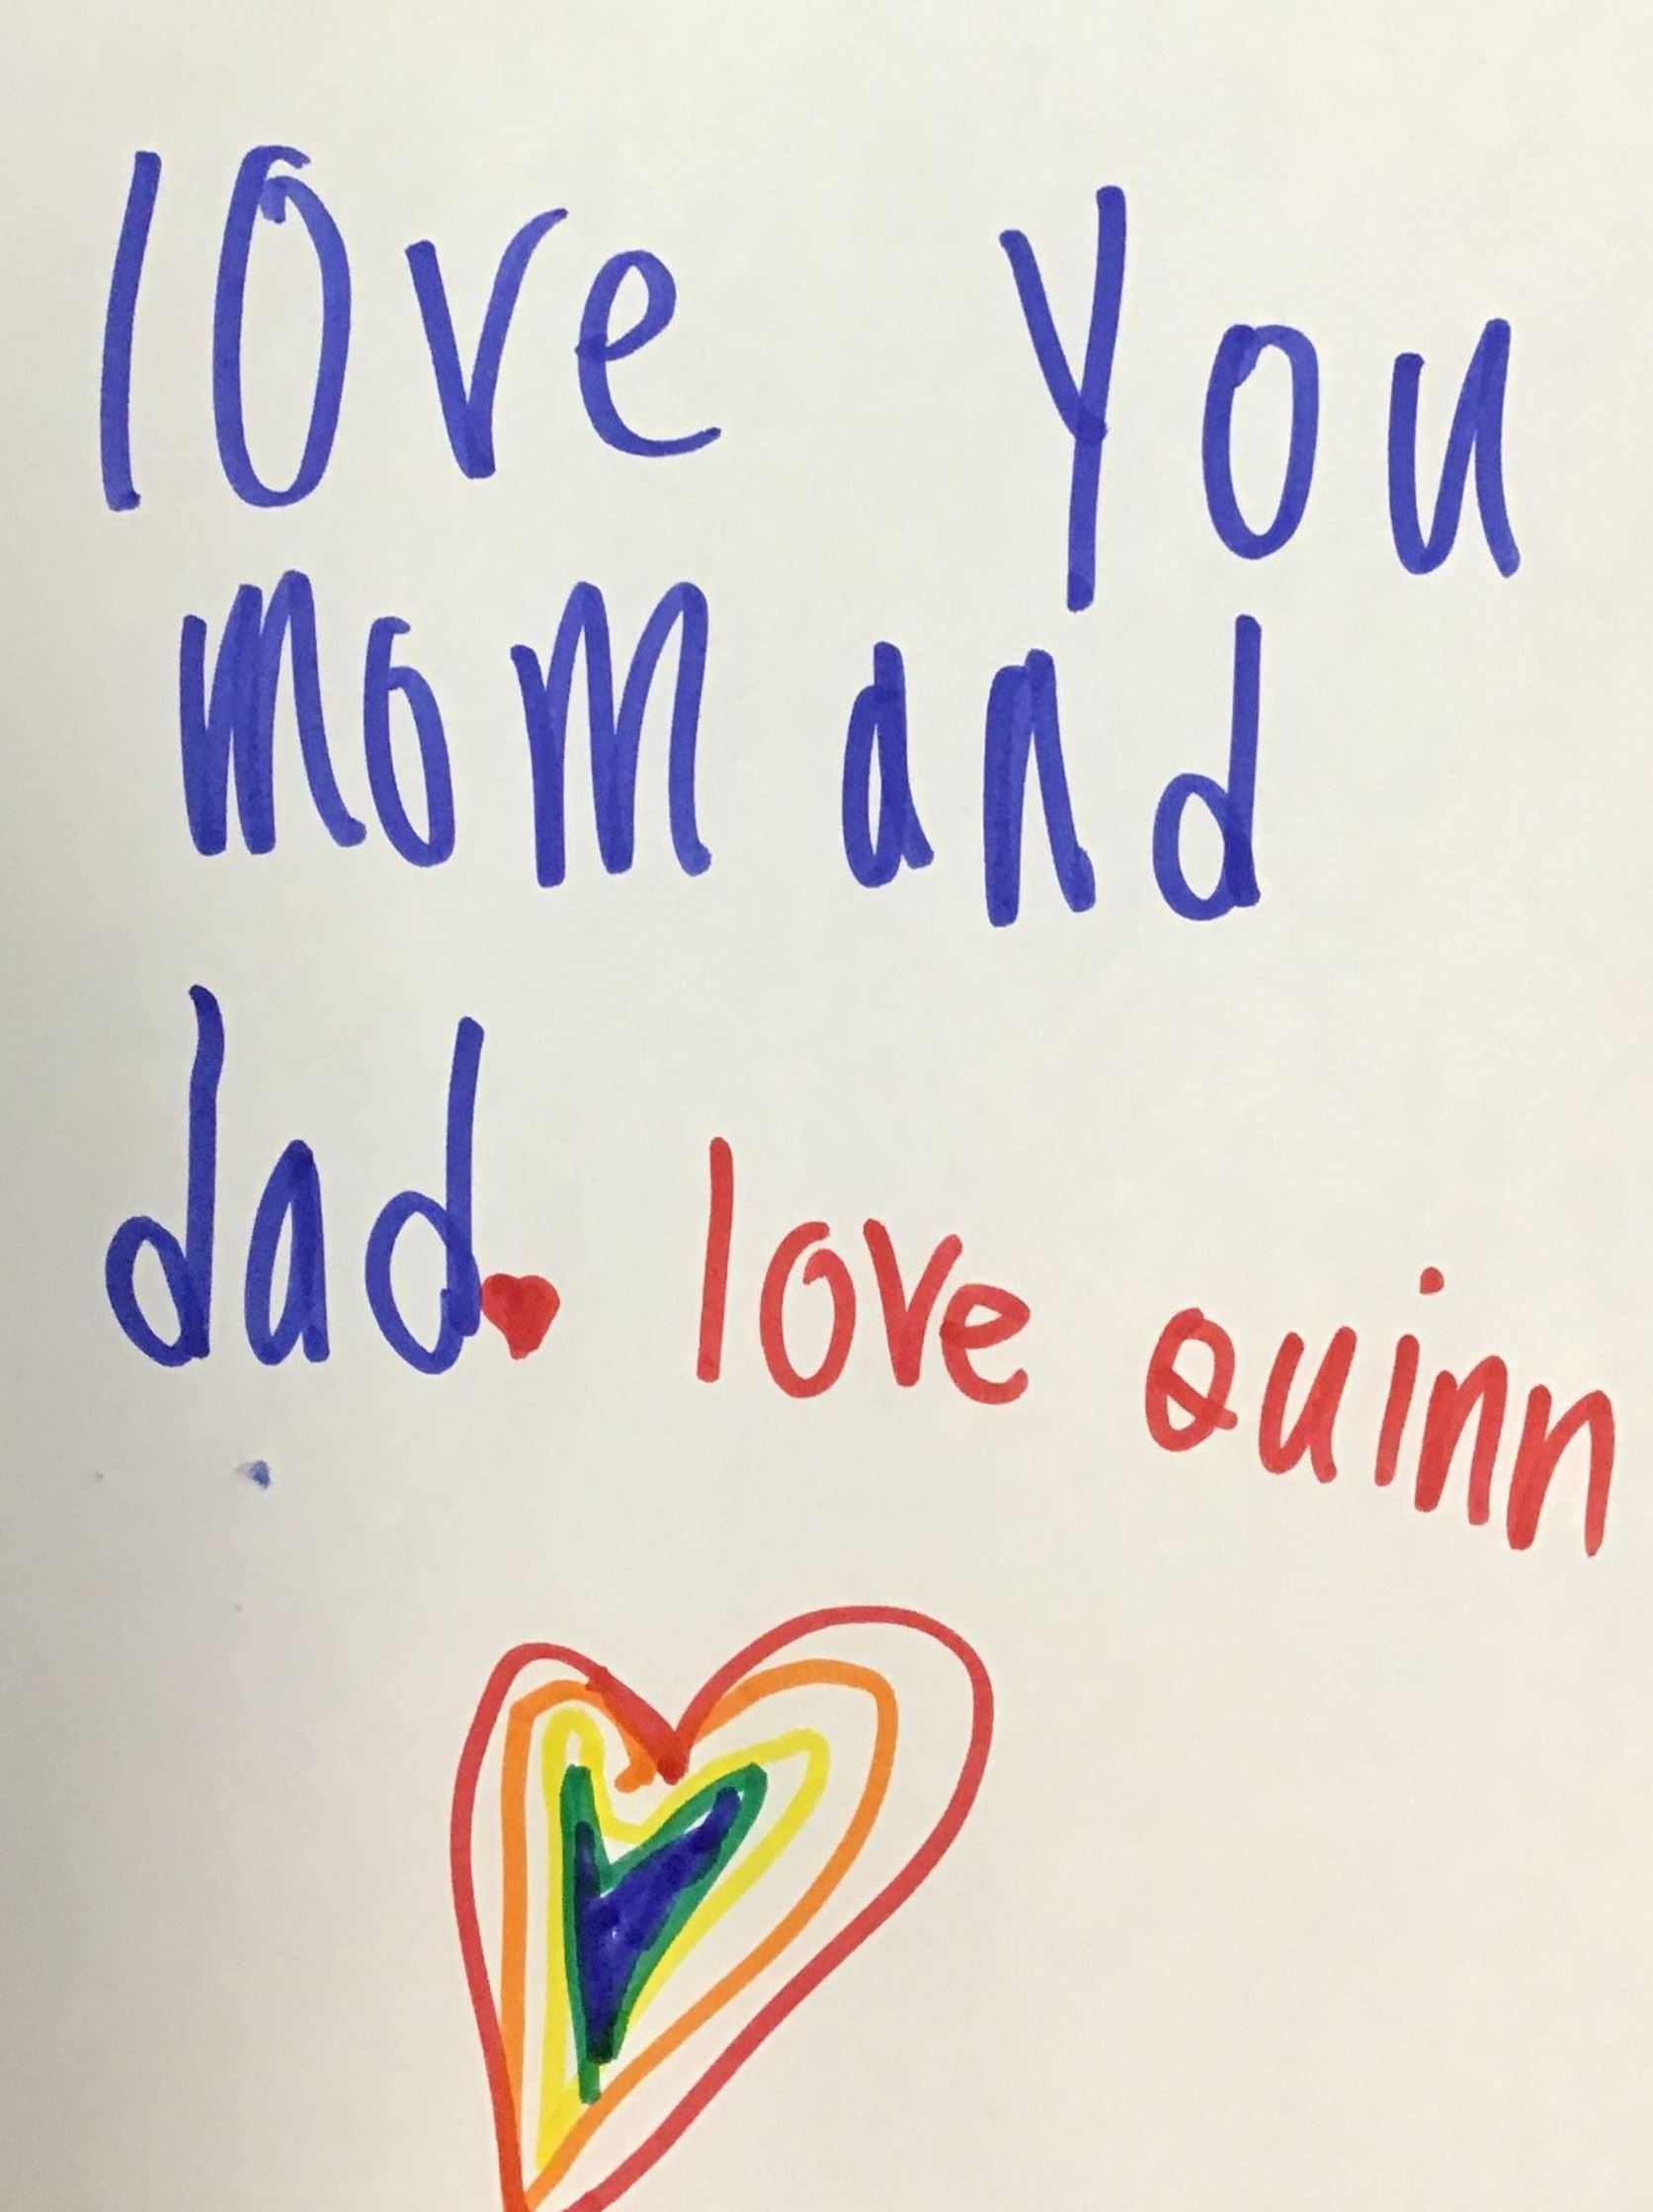 love you
mom and
dad. love quinn